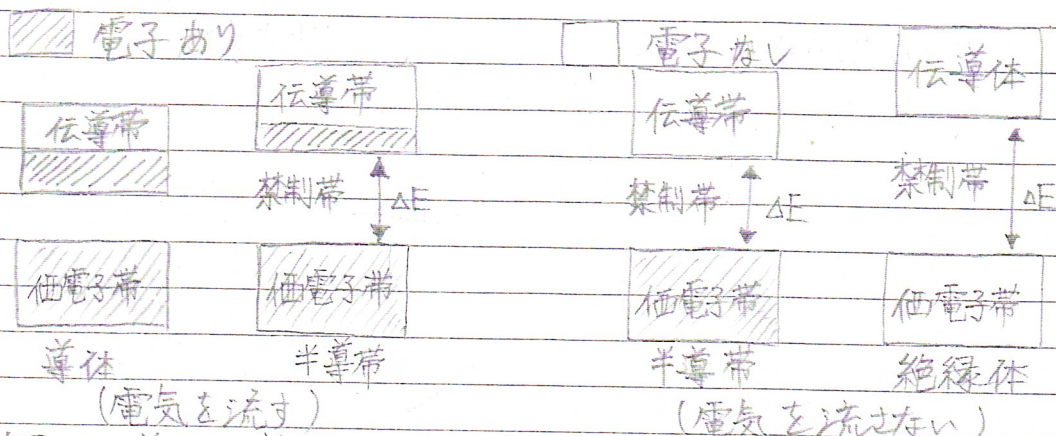 電子あり 電子なし
伝導帯 伝導帯 伝導帯 伝導体
禁制帯 ΔE 禁制帯 ΔE 禁制帯 ΔE
価電子帯 価電子帯 価電子帯 価電子帯
導体 半導帯 半導帯 絶縁体
(電気を流す) (電気を流さない)